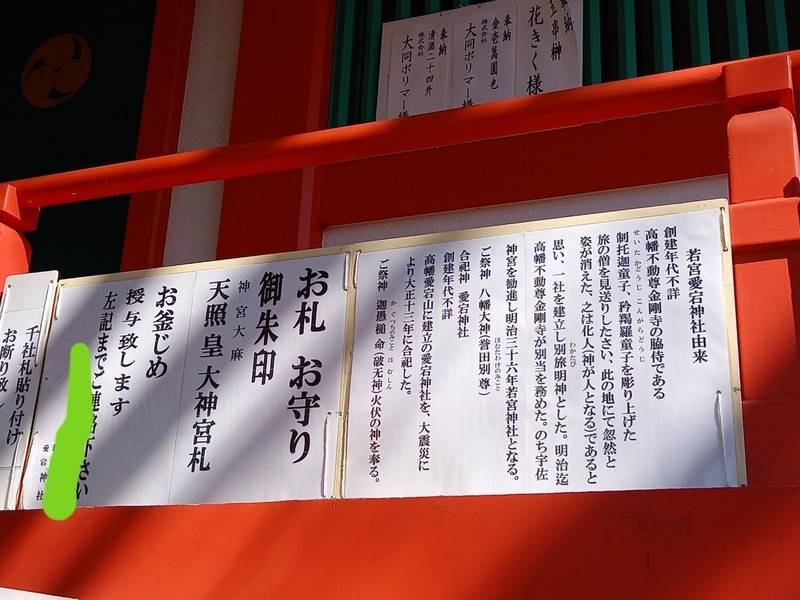 奉納
玉串榊
花きく様
奉納
金壱萬圓也
株式会社
大同ポリマー様
奉納
清酒二十四升
株式会社
大同ポリマー様
若宮愛宕神社由来
創建年代不詳
高幡不動尊金剛寺の脇侍である
せいたかどうじ こんがらどうじ
制托迦童子、矜羯羅童子を彫り上げた
旅の僧を見送りしたさい、此の地にて忽然と
姿が消えた。之は化人(神が人となる)であると
わかたび
思い、一社を建立し別旅明神とした。明治迄
高幡不動尊金剛寺が別当を務めた。のち宇佐
神宮を勧進し明治三十六年若宮神社となる。
ほむたわけのみこと
ご祭神 八幡大神(誉田別尊)
合祀神 愛宕神社
創建年代不詳
高幡愛宕山に建立の愛宕神社を、大震災に
より大正十三年に合祀した。
かぐつちのみこと はむしん
ご祭神 迦愚槌命(破无神)火伏の神を奉る。
お札 お守り
御朱印
神宮大麻
天照皇大神宮札
お釜じめ
授与致します
左記までご連絡下さい
愛宕神社
千社札貼り付け
お断り致し